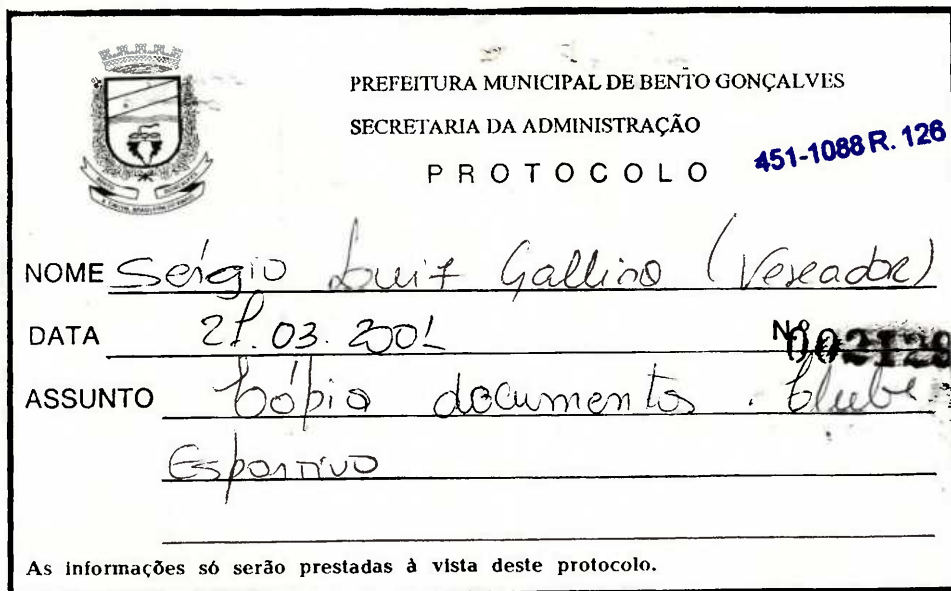 PREFEITURA MUNICIPAL DE BENTO GONÇALVES
SECRETARIA DA ADMINISTRAÇÃO
PROTOCOLO
451-1088 R. 126
NOME Sérgio Luiz Gallina (Vereador)
DATA 21.03.2001 Nº 002129
ASSUNTO Cópia documentos. Clube
Esportivo
As informações só serão prestadas à vista deste protocolo.